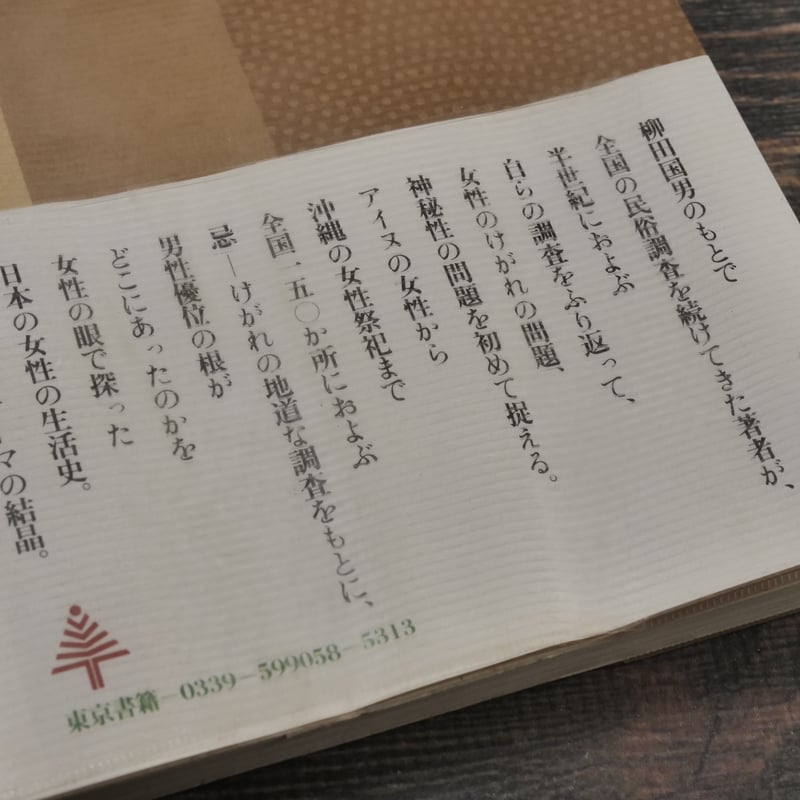 柳田国男のもとで
全国の民俗調査を続けてきた著者が、
半世紀におよぶ
自らの調査をふり返って、
女性のけがれの問題、
神秘性の問題を初めて捉える。
アイヌの女性から
沖縄の女性祭祀まで
全国一五〇か所におよぶ
忌―けがれの地道な調査をもとに、
男性優位の根が
どこにあったのかを
女性の眼で探った
日本の女性の生活史。
マの結晶。
東京書籍―0339―599058―5313